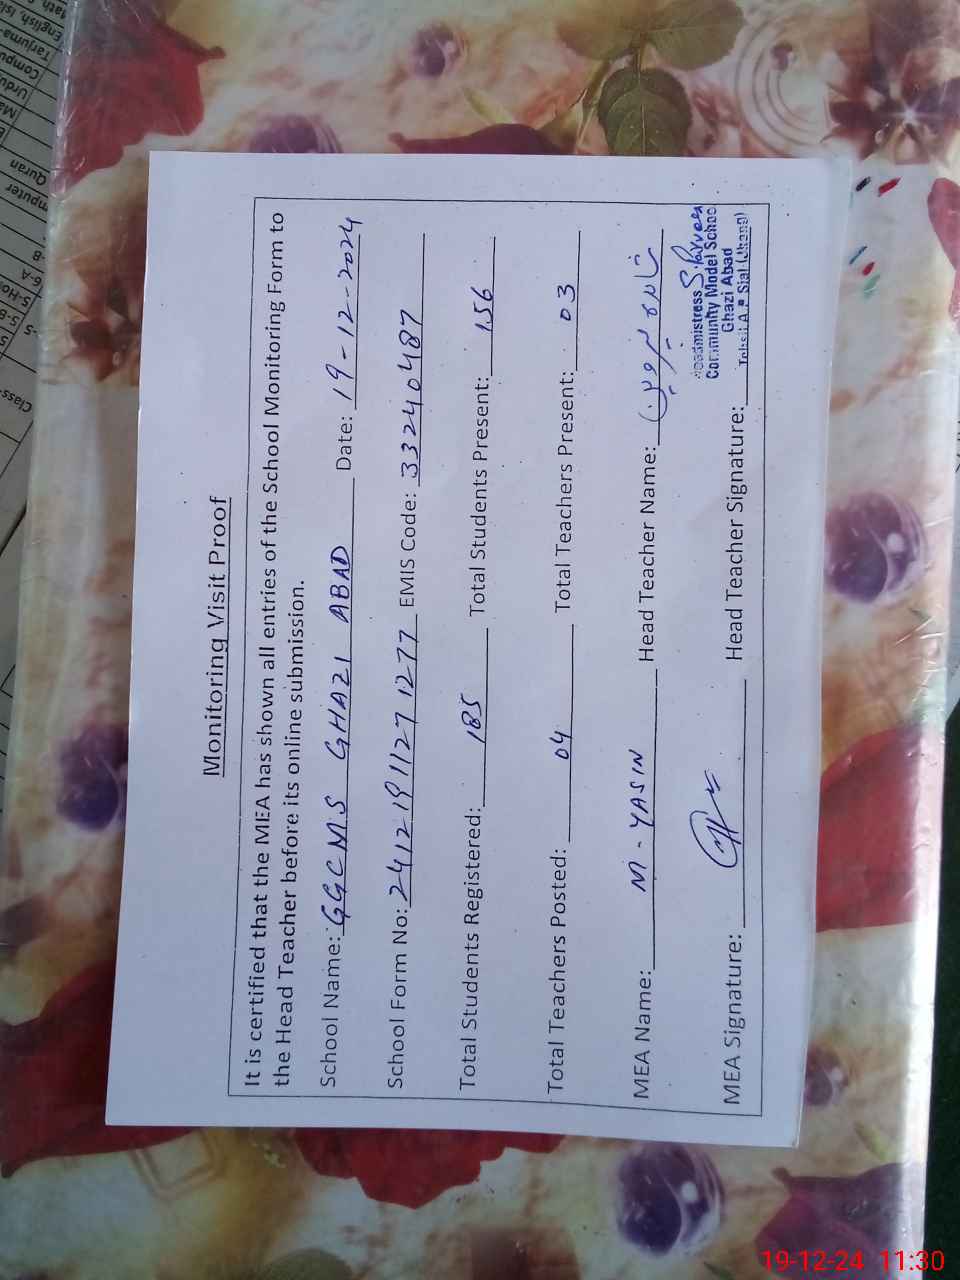 Monitoring Visit Proof
It is certified that the MEA has shown all entries of the School Monitoring Form to
the Head Teacher before its online submission.
School Name: GGCMS GHAZI ABAD Date: 19-12-2024
School Form No: 24121911271277 EMIS Code: 33240487
Total Students Registered: 185 Total Students Present: 156
Total Teachers Posted: 04 Total Teachers Present: 03
MEA Name: M-YASIN Head Teacher Name: شاہدہ پروین
MEA Signature: Head Teacher Signature:
S.Parveen
Headmistress
Community Model School
Ghazi Abad
Tehsil A.P Sial (Jhang)
English,
Tarjuma-
Compu
Urdu
Quran
mputer
6-A
Class-
19-12-24 11:30